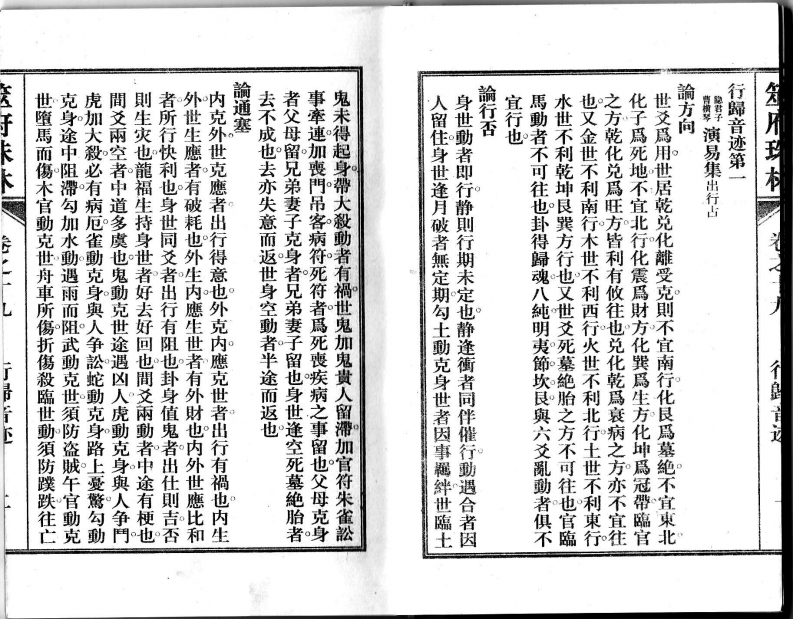 筮府珠林
卷之十九
行歸音迹
一
行歸音迹第一
隐君子
曹横琴
演易集出行占
論方向
世爻爲用世居乾兑化離受克則不宜南行化艮爲墓絶不宜東北
化子爲死地不宜北行化震爲財方化巽爲生方化坤爲冠帶臨官
之方乾化兑爲旺方皆利有攸往也兑化乾爲衰病之方亦不宜往
也又金世不利南行木世不利西行火世不利北行土世不利東行
水世不利乾坤艮巽方行也又世爻死墓絶胎之方不可往也官臨
馬動者不可往也卦得歸魂八純明夷節坎艮與六爻亂動者俱不
宜行也
論行否
身世動者即行静則行期未定也静逢衝者同伴催行動遇合者因
人留住身世逢月破者無定期勾土動克身世者因事羈絆世臨土
鬼未得起身帶大殺動者有禍世鬼加鬼貴人留滯加官符朱雀訟
事牽連加喪門吊客病符死符者爲死喪疾病之事留也父母克身
者父母留兄弟妻子克身者兄弟妻子留也身世逢空死墓絶胎者
去不成也去亦失意而返世身空動者半途而返也
論通塞
内克外世克應者出行得意也外克内應克世者出行有禍也内生
外世生應者有破耗也外生内應生世者有外財也内外世應比和
者所行快利也身世同爻者出行有阻也卦身值鬼者出仕則吉否
則生灾也龍福生持身世者好去好回也間爻兩動者中途有梗也
間爻兩空者中道多虞也鬼動克世途遇凶人虎動克身與人争鬥
虎加大殺必有病厄雀動克身與人争訟蛇動克身路上憂驚勾動
克身途中阻滯勾加水動遇雨而阻武動克世須防盗賊午官動克
世墮馬而傷木官動克世舟車所傷折傷殺臨世動須防蹼跌往亡
筮府珠林
卷之十九
行歸音迹
二